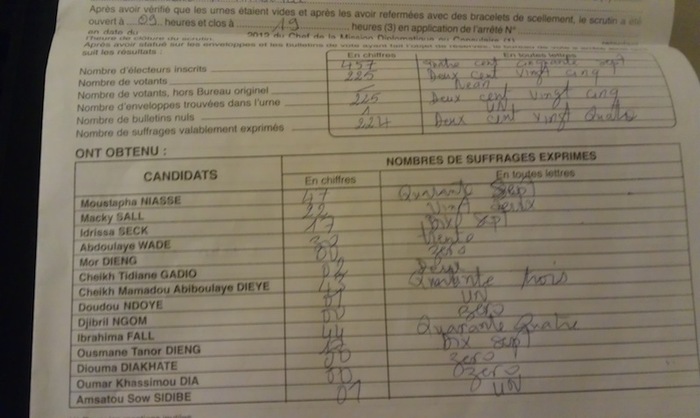 Après avoir vérifié que les urnes étaient vides et après les avoir refermées avec des bracelets de scellement, le scrutin a été
ouvert à 09 heures et clos à 19 heures (3) en application de l'arrêté N°
en date du 2012 du Chef de la Mission Diplomatique ou Consulaire (1)
l'heure de clôture du scrutin.
Après avoir statué sur les enveloppes et les bulletins de vote ayant fait l'objet de réserves, le bureau de vote
suit les résultats :
En chiffres En toutes lettres
Nombre d'électeurs inscrits 457 Quatre cent cinquante sept
Nombre de votants 225 Deux cent vingt cinq
Nombre de votants, hors Bureau originel Néan
Nombre d'enveloppes trouvées dans l'urne 225 Deux cent vingt cinq
Nombre de bulletins nuls 1 UN
Nombre de suffrages valablement exprimés 224 Deux cent vingt Quatre
ONT OBTENU :
CANDIDATS NOMBRES DE SUFFRAGES EXPRIMES
En chiffres En toutes lettres
Moustapha NIASSE 47 Quarante sept
Macky SALL 22 vingt deux
Idrissa SECK 17 Dix sept
Abdoulaye WADE 30 trente
Mor DIENG 00 zero
Cheikh Tidiane GADIO 02
Cheikh Mamadou Abiboulaye DIEYE 43 Quarante trois
Doudou NDOYE 01 UN
Djibril NGOM 00 zero
Ibrahima FALL 44 Quarante Quatre
Ousmane Tanor DIENG 17 Dix sept
Diouma DIAKHATE 00 zero
Oumar Khassimou DIA 00 zero
Amsatou Sow SIDIBE 01 UN